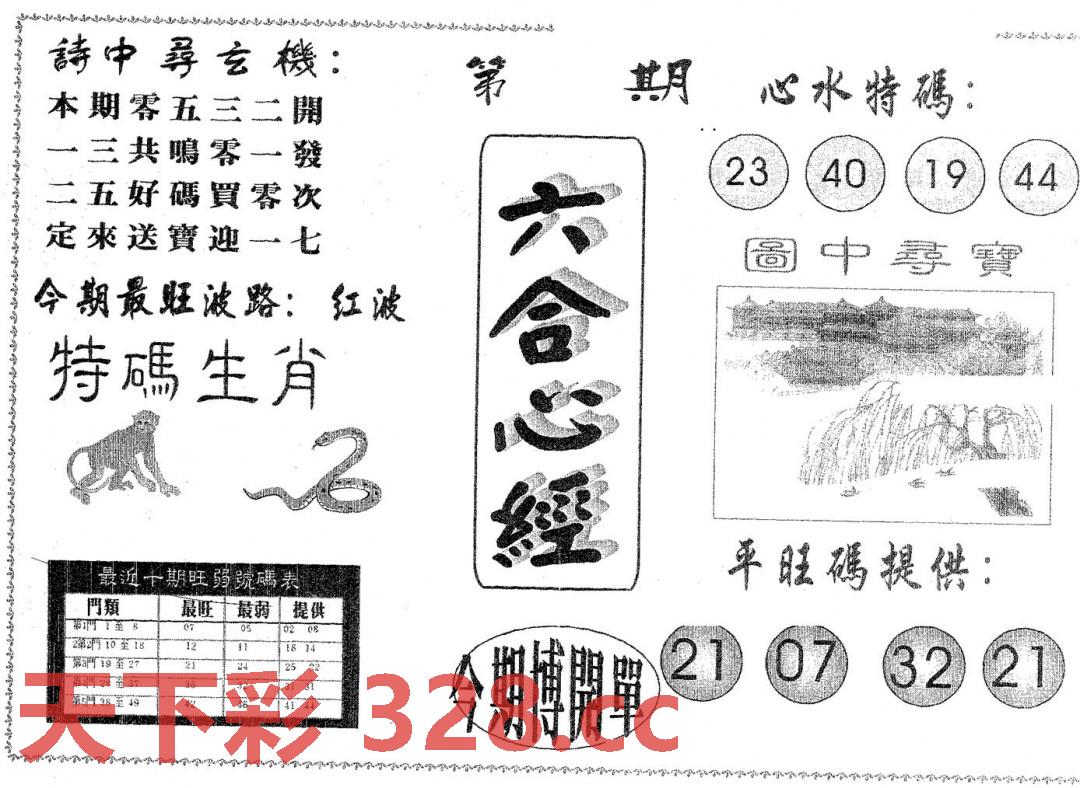 詩中尋玄機：
本期零五三二開
一三共鳴零一發
二五好碼買零次
定來送寶迎一七
今期最旺波路：红波
特碼生肖
最近十期旺弱號碼表
門類 最旺 最弱 提供
第1門 1 至 8 07 05 02 08
2第2門 10 至 18 12 11 18 14
第3門 19 至 27 21 24 25 22
第 期
六合心經
今期博開單
心水特碼：
23 40 19 44
圖中尋寶
平旺碼提供：
21 07 32 21
天下彩 328.cc